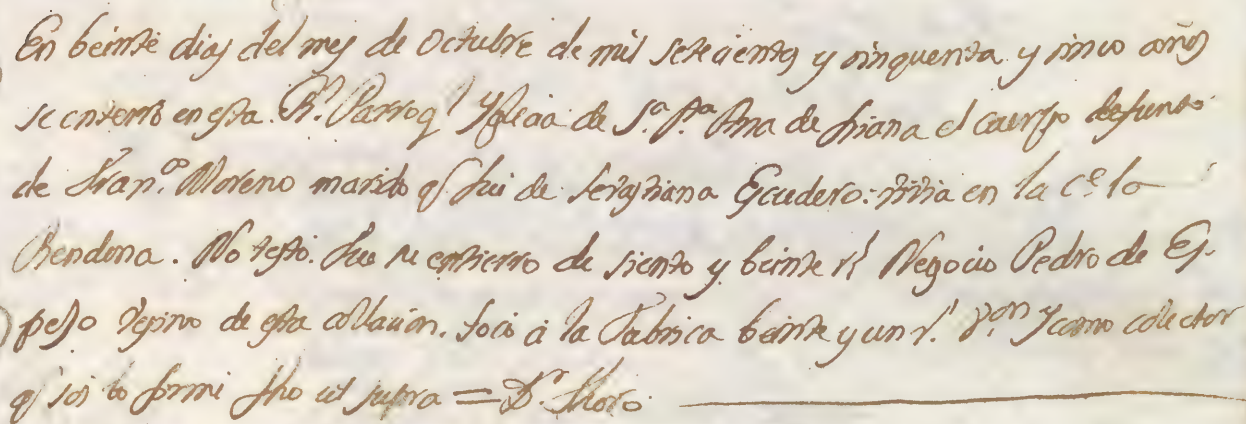 En beinte dias del mes de Octubre de mil setecientos y sinquenta y sinco años
se enterro en esta Rl. Parroql. Yglecia de Sa. Sta. Ana de triana el cuerpo defunto
de Franco. Moreno marido q. fui de Sevastiana Escudero: vivia en la ce. la
Rendona. No testó. Fue su entierro de siento y beinte rs. Negocio Pedro de Es-
pejo vesino de esta collacion. tocó á la Fabrica beinte y un rs. von. Y como colector
q. soi lo firmi fho ut supra = Dr.